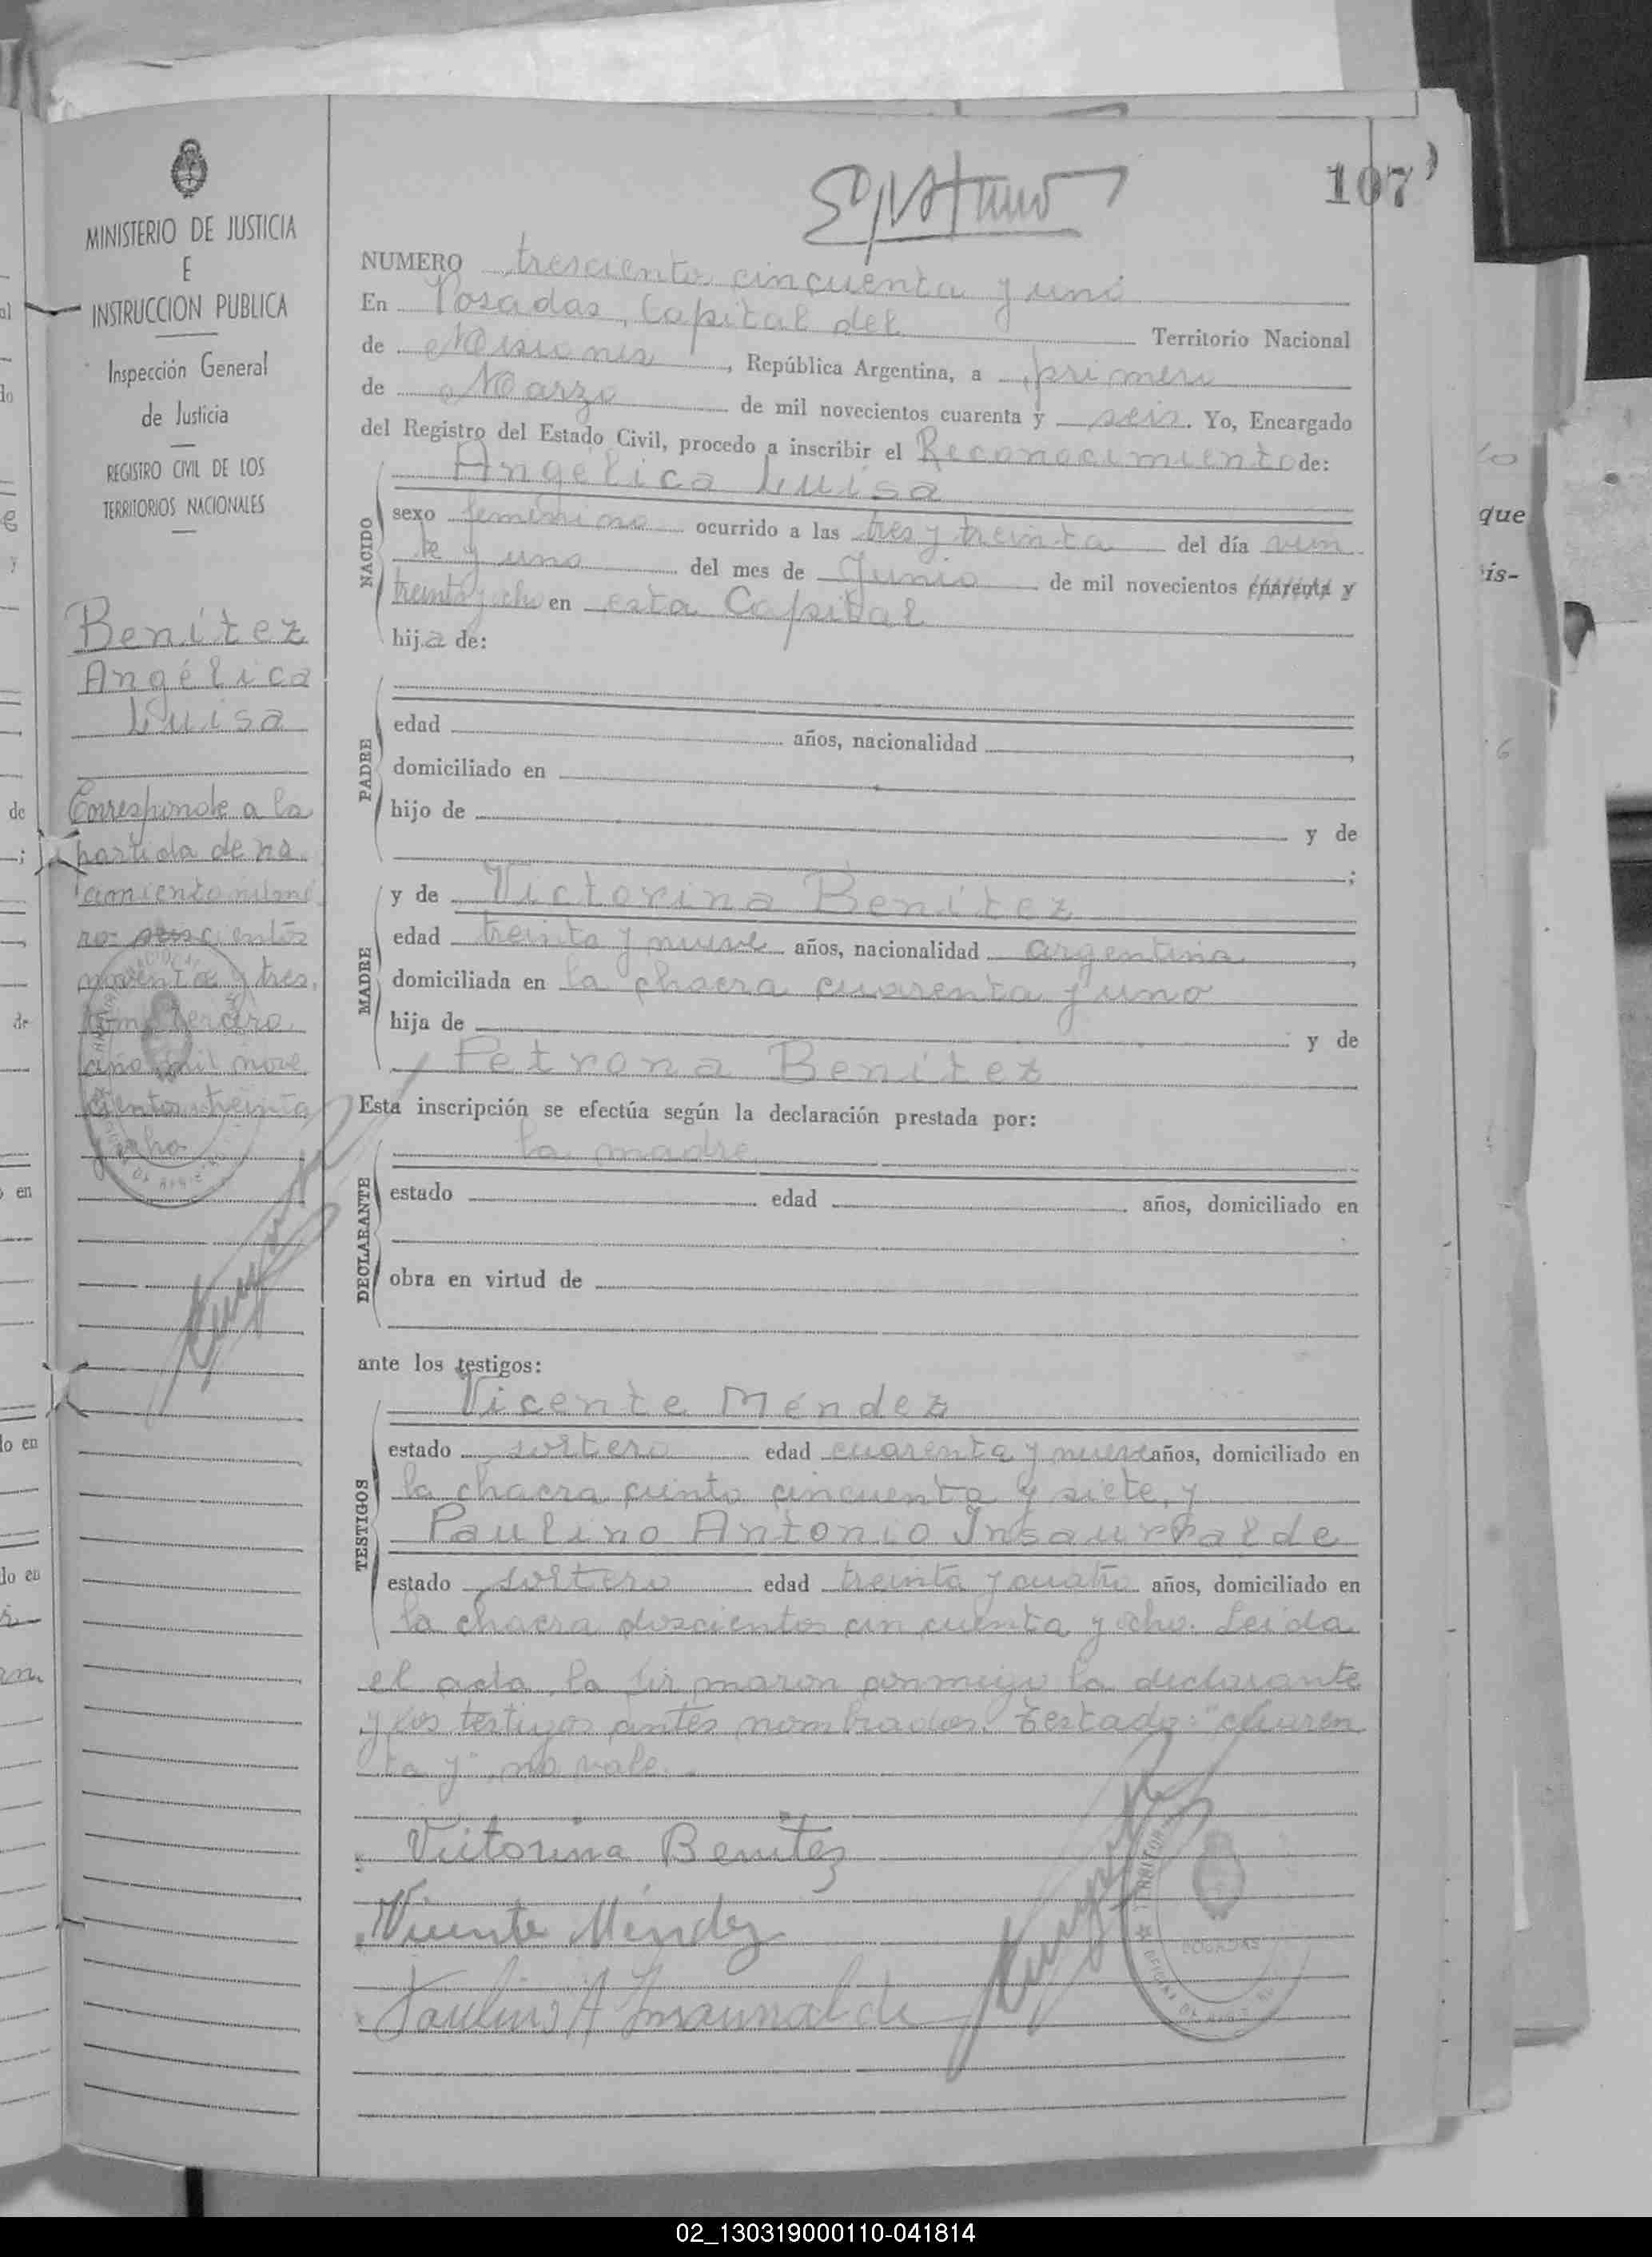 107
MINISTERIO DE JUSTICIA
E
INSTRUCCION PUBLICA
Inspección General
de Justicia
REGISTRO CIVIL DE LOS
TERRITORIOS NACIONALES
Benítez
Angélica
Luisa
Corresponde a la
partida de na
cimiento núme
ro cientos
noventa y tres,
tomo tercero
año mil nove
cientos treinta
y ocho.
NUMERO tresciento cincuenta y uno
En Posadas, Capital del Territorio Nacional
de Misiones, República Argentina, a primero
de Marzo de mil novecientos cuarenta y seis. Yo, Encargado
del Registro del Estado Civil, procedo a inscribir el Reconocimiento de:
NACIDO
Angélica Luisa
sexo femenino ocurrido a las tres y treinta del día vein
te y uno del mes de Junio de mil novecientos cuarenta y
treinta y ocho en esta Capital
hija de:
PADRE
edad años, nacionalidad ,
domiciliado en
hijo de y de
;
MADRE
y de Victorina Benítez
edad treinta y nueve años, nacionalidad argentina,
domiciliada en la chacra cuarenta y uno
hija de y de
Petrona Benítez
Esta inscripción se efectúa según la declaración prestada por:
DECLARANTE
la madre
estado edad años, domiciliado en
obra en virtud de
ante los testigos:
TESTIGOS
Vicente Méndez
estado soltero edad cuarenta y nueve años, domiciliado en
la chacra ciento cincuenta y siete, y
Paulino Antonio Insaurralde
estado soltero edad treinta y cuatro años, domiciliado en
la chacra doscientos cincuenta y ocho. Leída
el acta, la firmaron conmigo la declarante
y los testigos antes nombrados. Testado: "cuaren
ta y", no vale.
Victorina Benitez
Vicente Méndez
Paulino A Insaurralde
POSADAS
02_130319000110-041814